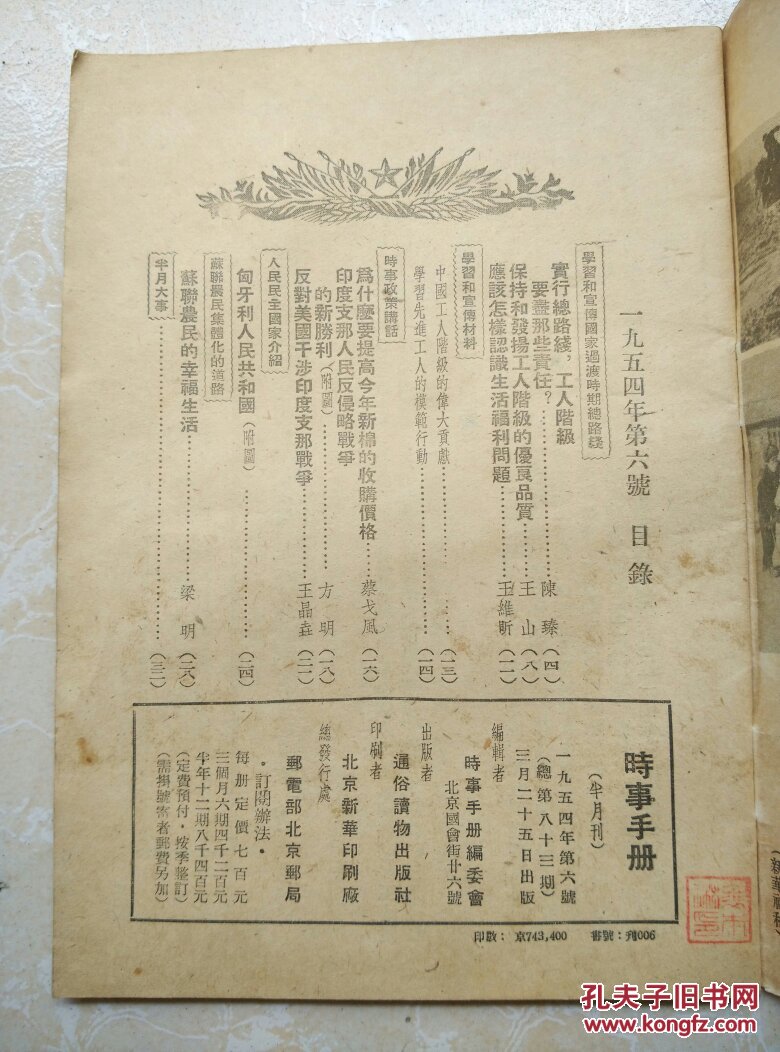 一九五四年第六號 目錄
學習和宣傳國家過渡時期總路綫
實行總路綫，工人階級
要盡那些責任？……陳 臻（四）
保持和發揚工人階級的優良品質……王 山（八）
應該怎樣認識生活福利問題……王維昕（一一）
學習和宣傳材料
中國工人階級的偉大貢獻……（一三）
學習先進工人的模範行動……（一四）
時事政策講話
爲什麼要提高今年新棉的收購價格……蔡戈風（一六）
印度支那人民反侵略戰爭
的新勝利（附圖）……方 明（一八）
反對美國干涉印度支那戰爭……王晶垚（二一）
人民民主國家介紹
匈牙利人民共和國（附圖）……（二四）
蘇聯農民集體化的道路
蘇聯農民的幸福生活……梁 明（二八）
半月大事……（三二）
時事手册
（半月刊）
一九五四年第六號
（總第八十三期）
三月二十五日出版
編輯者
時事手册編委會
北京國會街廿六號
出版者
通俗讀物出版社
印刷者
北京新華印刷廠
總發行處
郵電部北京郵局
·訂閱辦法·
每册定價七百元
三個月六期四千二百元
半年十二期八千四百元
（定費預付·按季整訂）
（需掛號寄者郵費另加）
印數：京743,400 書號：刊006
孔夫子旧书网
www.kongfz.com